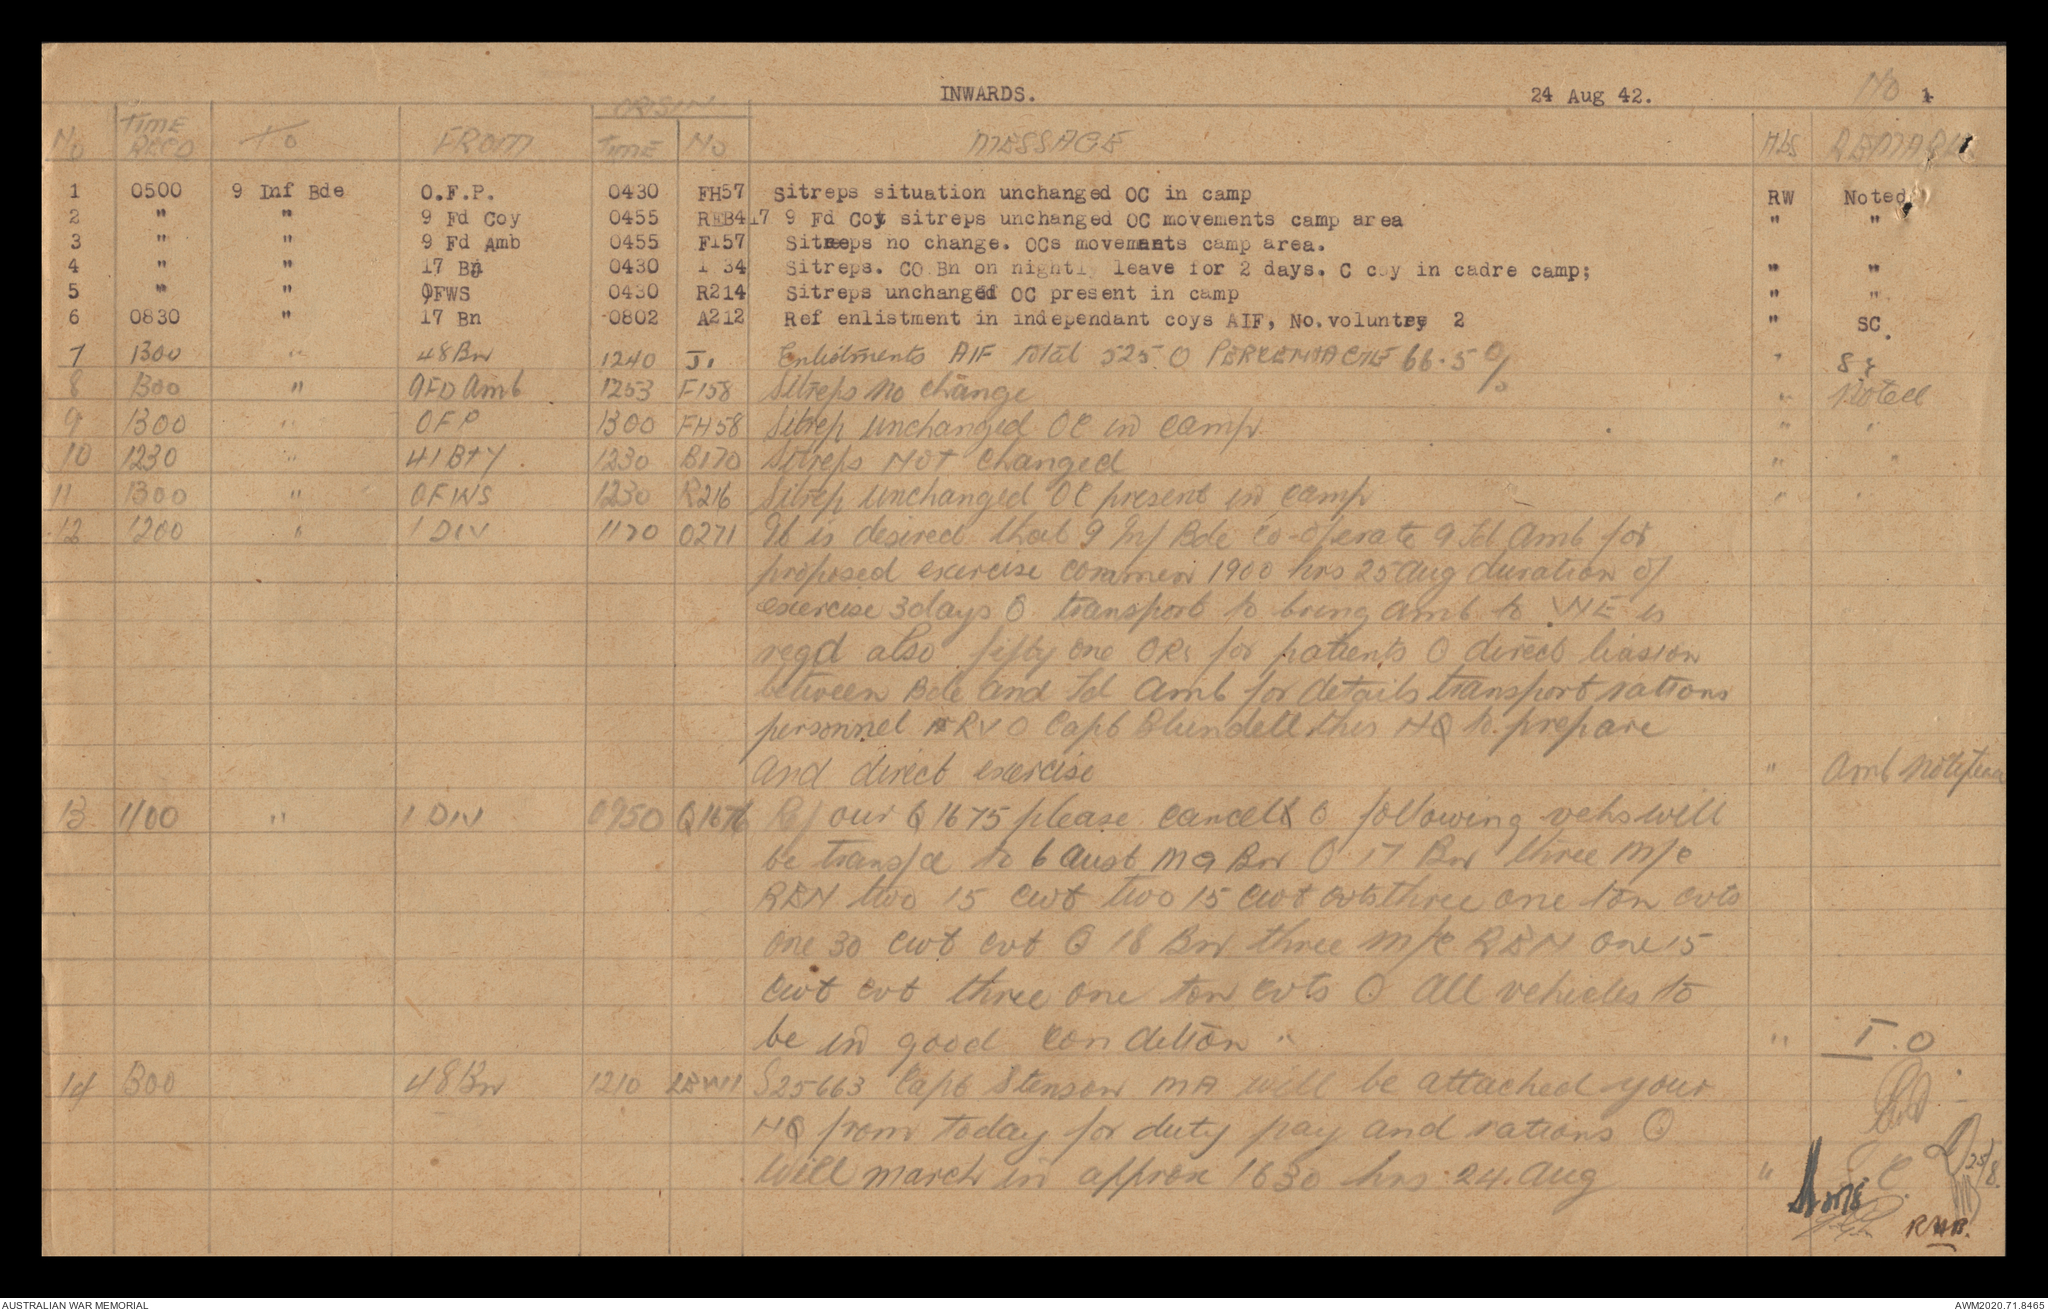 INWARDS. 24 Aug 42. No 1
No TIME RECD TO FROM ORIGIN TIME No MESSAGE MLS REMARKS
1 0500 9 Inf Bde O.F.P. 0430 FH57 Sitreps situation unchanged OC in camp RW Noted
2 " " 9 Fd Coy 0455 REB417 9 Fd Coy sitreps unchanged OC movements camp area " "
3 " " 9 Fd Amb 0455 F157 Sitreps no change. OCs movements camp area.
4 " " 17 Bn 0430 I 34 Sitreps. CO Bn on nightly leave for 2 days. C coy in cadre camp; " "
5 " " 9FWS 0430 R214 Sitreps unchanged OC present in camp " "
6 0830 " 17 Bn 0802 A212 Ref enlistment in independant coys AIF, No. voluntrey 2 " SC.
7 1300 " 48 Bn 1240 J1 Enlistments AIF total 525 O PERCENTAGE 66.5% "
8 1300 " 9FD Amb 1253 F158 Sitreps no change " Noted
9 1300 " OFP 1300 FH58 Sitrep unchanged OC in camp. " "
10 1230 " 41 Bty. 1230 B170 Sitreps NOT changed " "
11 1300 " OFWS 1230 R216 Sitrep unchanged OC present in camp " "
12 1200 " 1 DIV 1120 O271 It is desired that 9 Inf Bde co-operate 9 Fd Amb for
proposed exercise commen 1900 hrs 25 Aug duration of
exercise 3 days O transport to bring Amb to WE is
reqd also fifty one ORs for patients O direct liasion
between Bde and Fd Amb for details transport rations
personnel RV O Capt Blundell this HQ to prepare
and direct exercise " Amb notified
13 1100 " 1 DIV 0950 Q1676 Ref our Q1675 please cancel O following vehs will
be transfd to 6 Aust MG Bn O 17 Bn three M/C
REN two 15 cwt two 15 cwt cvts three one ton cvts
one 30 cwt cvt O 18 Bn three M/C REN one 15
cwt cvt three one ton cvts O All vehicles to
be in good condition " " T.O
14 1300 48 Bn 1210 S25663 Capt Stenson MA will be attached your
HQ from today for duty pay and rations O
Will march in approx 1630 hrs 24 Aug " 25/8.
RWB.
AUSTRALIAN WAR MEMORIAL AWM2020.71.8465